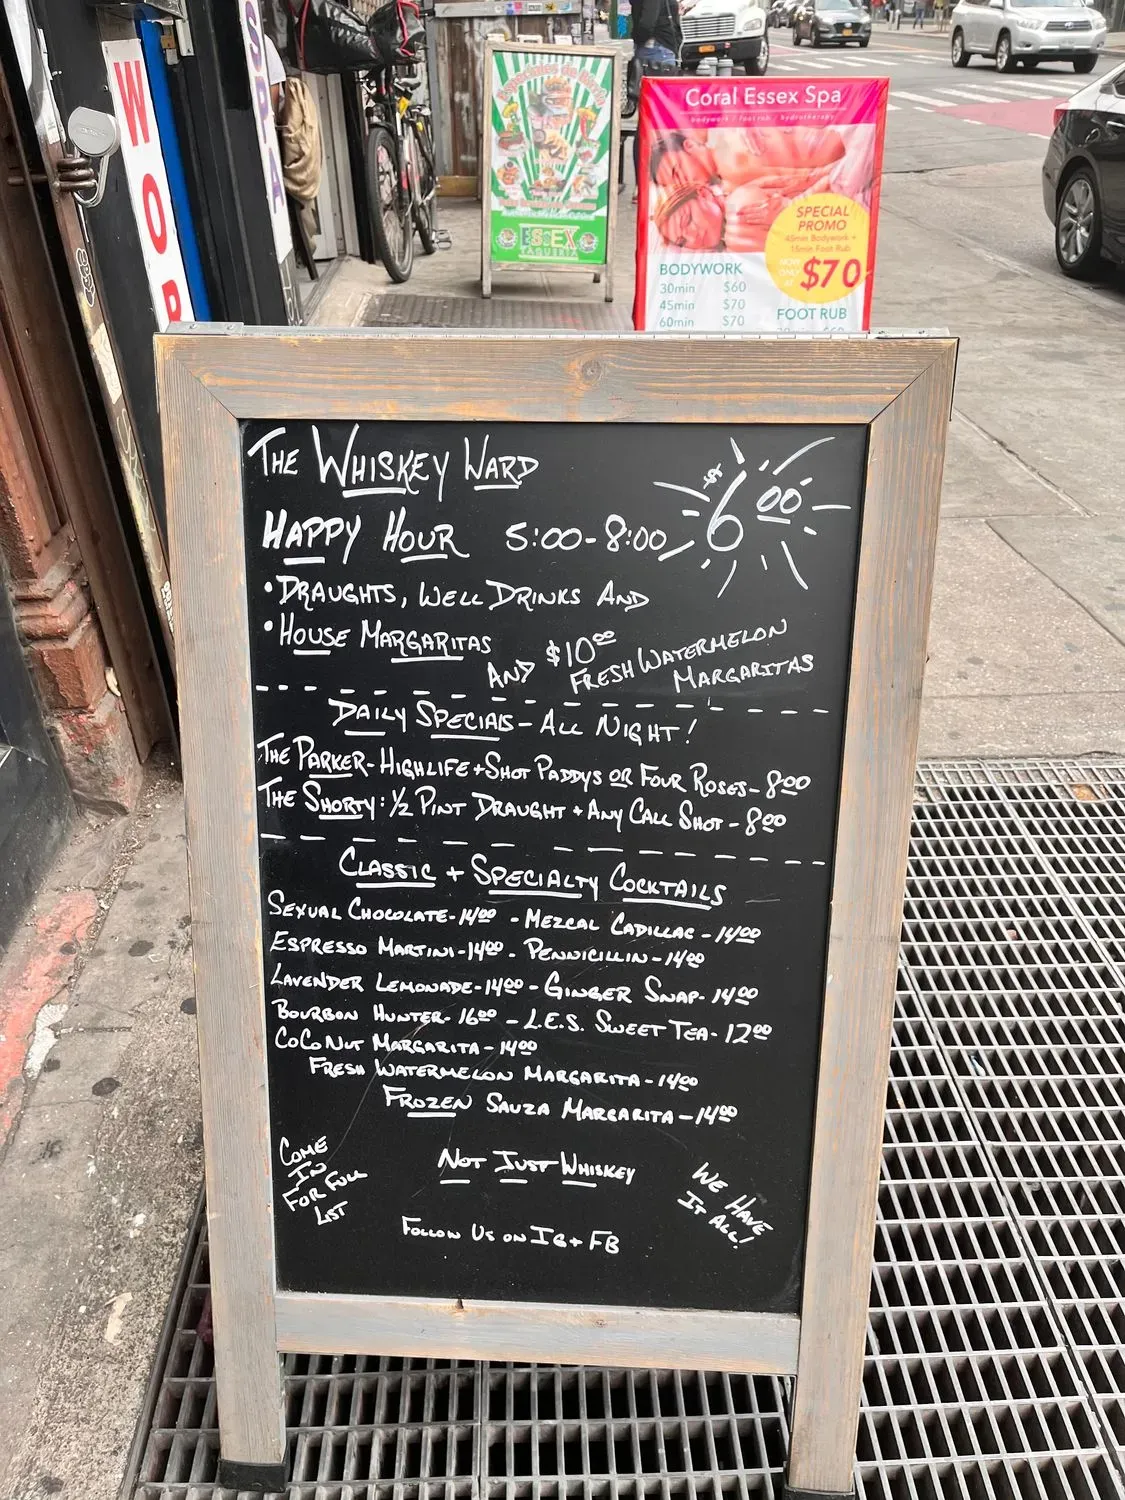 WOR
SPA
ESSEX
TAQUERIA
Coral Essex Spa
bodywork / foot rub / hydrotherapy
SPECIAL
PROMO
45min Bodywork +
15min Foot Rub
NOW
ONLY
AT
$70
BODYWORK
30min $60
45min $70
60min $70
FOOT RUB
THE WHISKEY WARD
HAPPY HOUR 5:00-8:00
$6.00
• DRAUGHTS, WELL DRINKS AND
• HOUSE MARGARITAS
AND $10.00 FRESH WATERMELON
MARGARITAS
DAILY SPECIALS - ALL NIGHT!
THE PARKER - HIGHLIFE + SHOT PADDYS OR FOUR ROSES - 8.00
THE SHORTY: 1/2 PINT DRAUGHT + ANY CALL SHOT - 8.00
CLASSIC + SPECIALTY COCKTAILS
SEXUAL CHOCOLATE - 14.00 - MEZCAL CADILLAC - 14.00
ESPRESSO MARTINI - 14.00 - PENNICILLIN - 14.00
LAVENDER LEMONADE - 14.00 - GINGER SNAP - 14.00
BOURBON HUNTER - 16.00 - L.E.S. SWEET TEA - 12.00
COCONUT MARGARITA - 14.00
FRESH WATERMELON MARGARITA - 14.00
FROZEN SAUZA MARGARITA - 14.00
COME
IN
FOR FULL
LIST
NOT JUST WHISKEY
WE HAVE
IT ALL!
FOLLOW US ON IG + FB